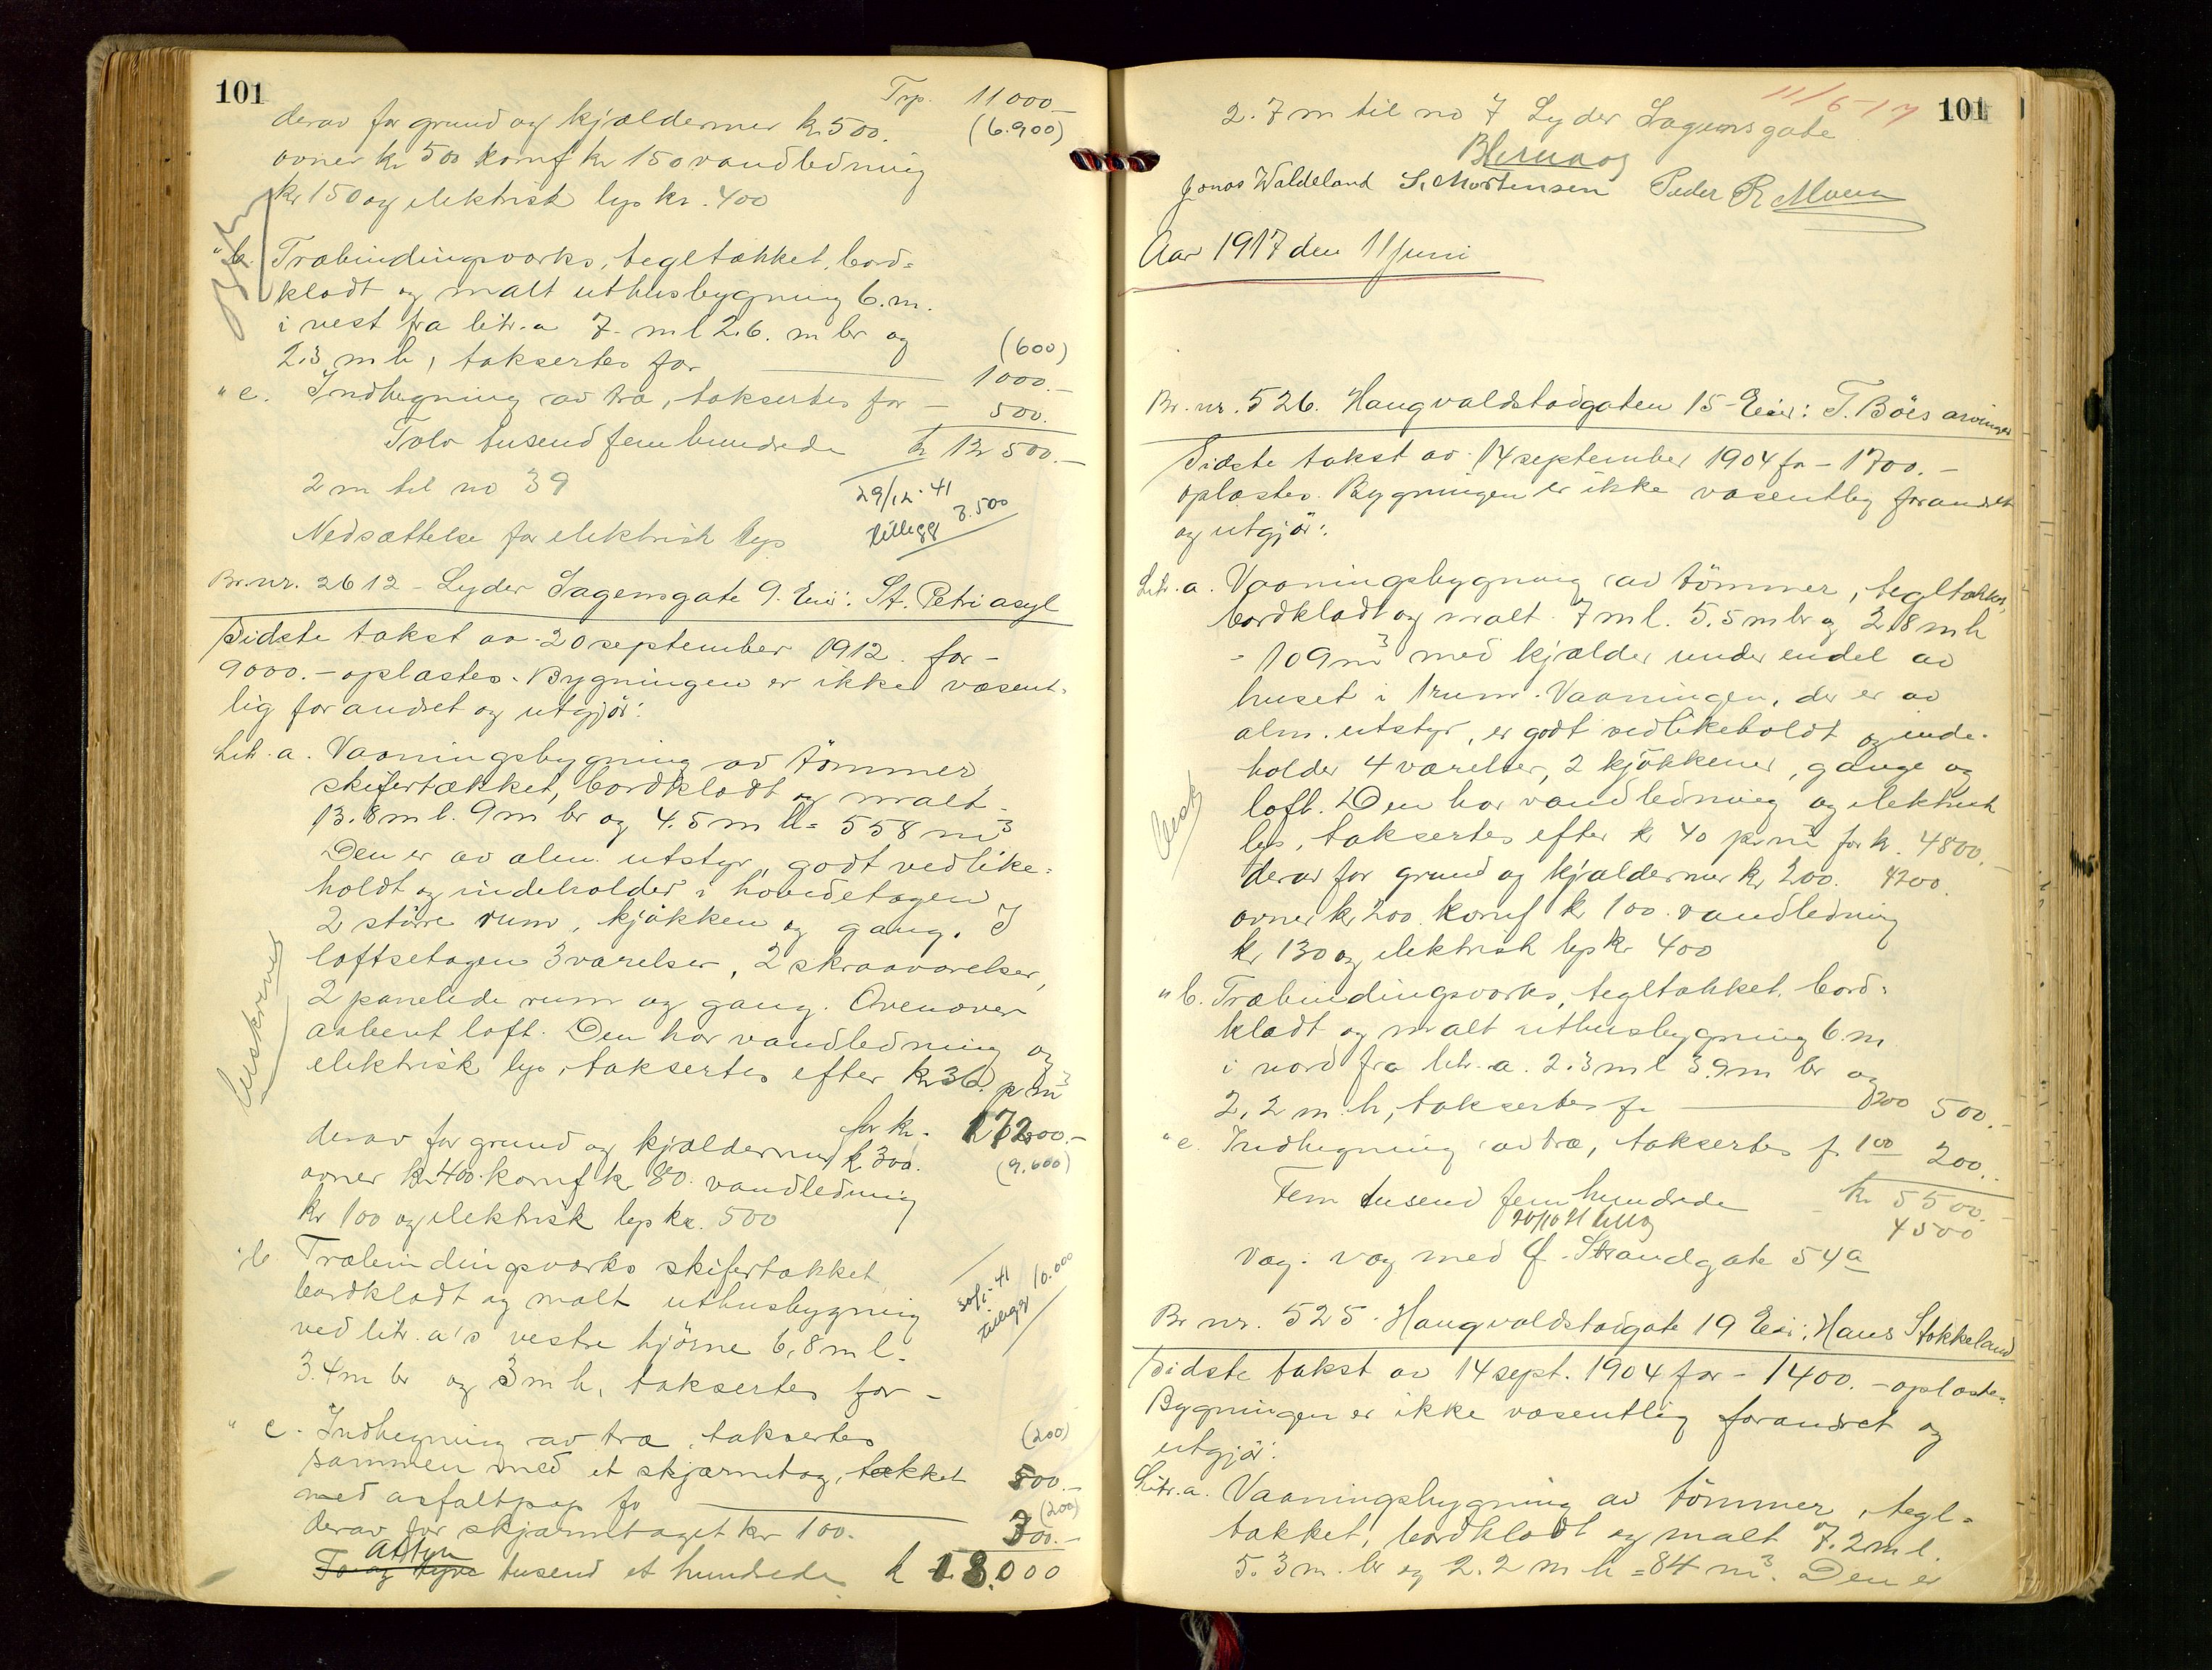 101
Trp. 11000.-
derav for grund og kjældermur kr. 500.
(6.900)
ovner kr 500 komf kr 150 vandledning
kr 150 og elektrisk lys kr. 400
" b. Træbindingsverks, tegltækket, bord-
klædt og malt uthusbygning 6. m.
i vest fra litr. a 7. m l 2.6. m br og
(600)
2.3 m h, taksertes for 1000.-
" c. Indhegning av træ, taksertes for - 500.
Tolv tusend fem hundrede kr 12 500.-
2 m til no 39
29/12-41
tillegg 3.500
Nedsættelse for elektrisk lys
Br.nr. 2612 - Lyder Sagensgate 9. Eier: St. Petri asyl
Sidste takst av 20 september 1912 for -
9000.- oplæstes. Bygningen er ikke væsent-
lig forandret og utgjör:
Litr. a. Vaaningsbygning av tömmer,
skifertækket, bordklædt og malt -
13.8 m l. 9 m br og 4.5 m h = 558 m³
Den er av alm. utstyr, godt vedlike-
holdt og indeholder i hovedetagen
2 större rum, kjökken og gang. I
loftsetagen 3 værelser, 2 skraaværelser,
2 panelede rum og gang. Ovenover
aabent loft. Den har vandledning og
elektrisk lys, taksertes efter kr 36 p m³
for kr. 17200.-
derav for grund og kjældermur kr 300.
(9.600)
ovner kr 400. komf kr 80. vandledning
kr 100 og elektrisk lys kr. 500
" b Træbindingsverks skifertækket,
bordklædt og malt uthusbygning
tillegg 10.000
ved litr. a's vestre hjörne 6,8 m l.
3.4 m br og 3 m h, taksertes for -
(200)
" c. Indhegning av træ, taksertes
sammen med et skjærmtag, tækket 500.-
med asfaltpap for
(200)
derav for skjærmtaget kr 100. 300.-
Atten
To og tyve tusend et hundrede kr 18.000
101
11/6-17
2.7 m til no 7 Lyder Sagensgate
Jonas Waldeland S. Mortensen Peder R. Moen
Aar 1917 den 11 Juni
Br. nr. 526. Haugvaldstadgaten 15 Eier: T. Böes arvinger
Sidste takst av 14 september 1904 for - 1700.-
oplæstes. Bygningen er ikke væsentlig forandret
og utgjör:
Litr. a. Vaaningsbygning av tömmer, tegltækket,
bordklædt og malt 7 m l. 5.5 m br og 2.8 m h
= 109 m³ med kjælder under endel av
huset i 1 rum. Vaaningen, der er av
alm. utstyr, er godt vedlikeholdt og inde-
holder 4 værelser, 2 kjökkener, gange og
loft. Den har vandledning og elektrisk
lys, taksertes efter kr 40 pr m³ for kr. 4800.-
derav for grund og kjældermur kr 200. 4200.
ovner kr 200 komf kr 100. vandledning
kr 130 og elektrisk lys kr 400
" b. Træbindingsverks, tegltækket, bord-
klædt og malt uthusbygning 6 m
i nord fra litr. a. 2.3 m l 3.9 m br og
2,2 m. h, taksertes fr 200 500.-
" c. Indhegning av træ, taksertes fr 100 200.-
Fem tusend fem hundrede kr 5500.-
4500
Væg i væg med Ö. Strandgate 54a
Br nr. 525. Haugvaldstadgate 19 Eier: Hans Stokkeland
Sidste takst av 14 sept. 1904 for - 1400.- oplæstes.
Bygningen er ikke væsentlig forandret og
utgjör:
Litr. a. Vaaningsbygning av tömmer, tegl-
tækket, bordklædt og malt 7.2 m l.
5.3 m. br og 2.2 m h = 84 m³. Den er